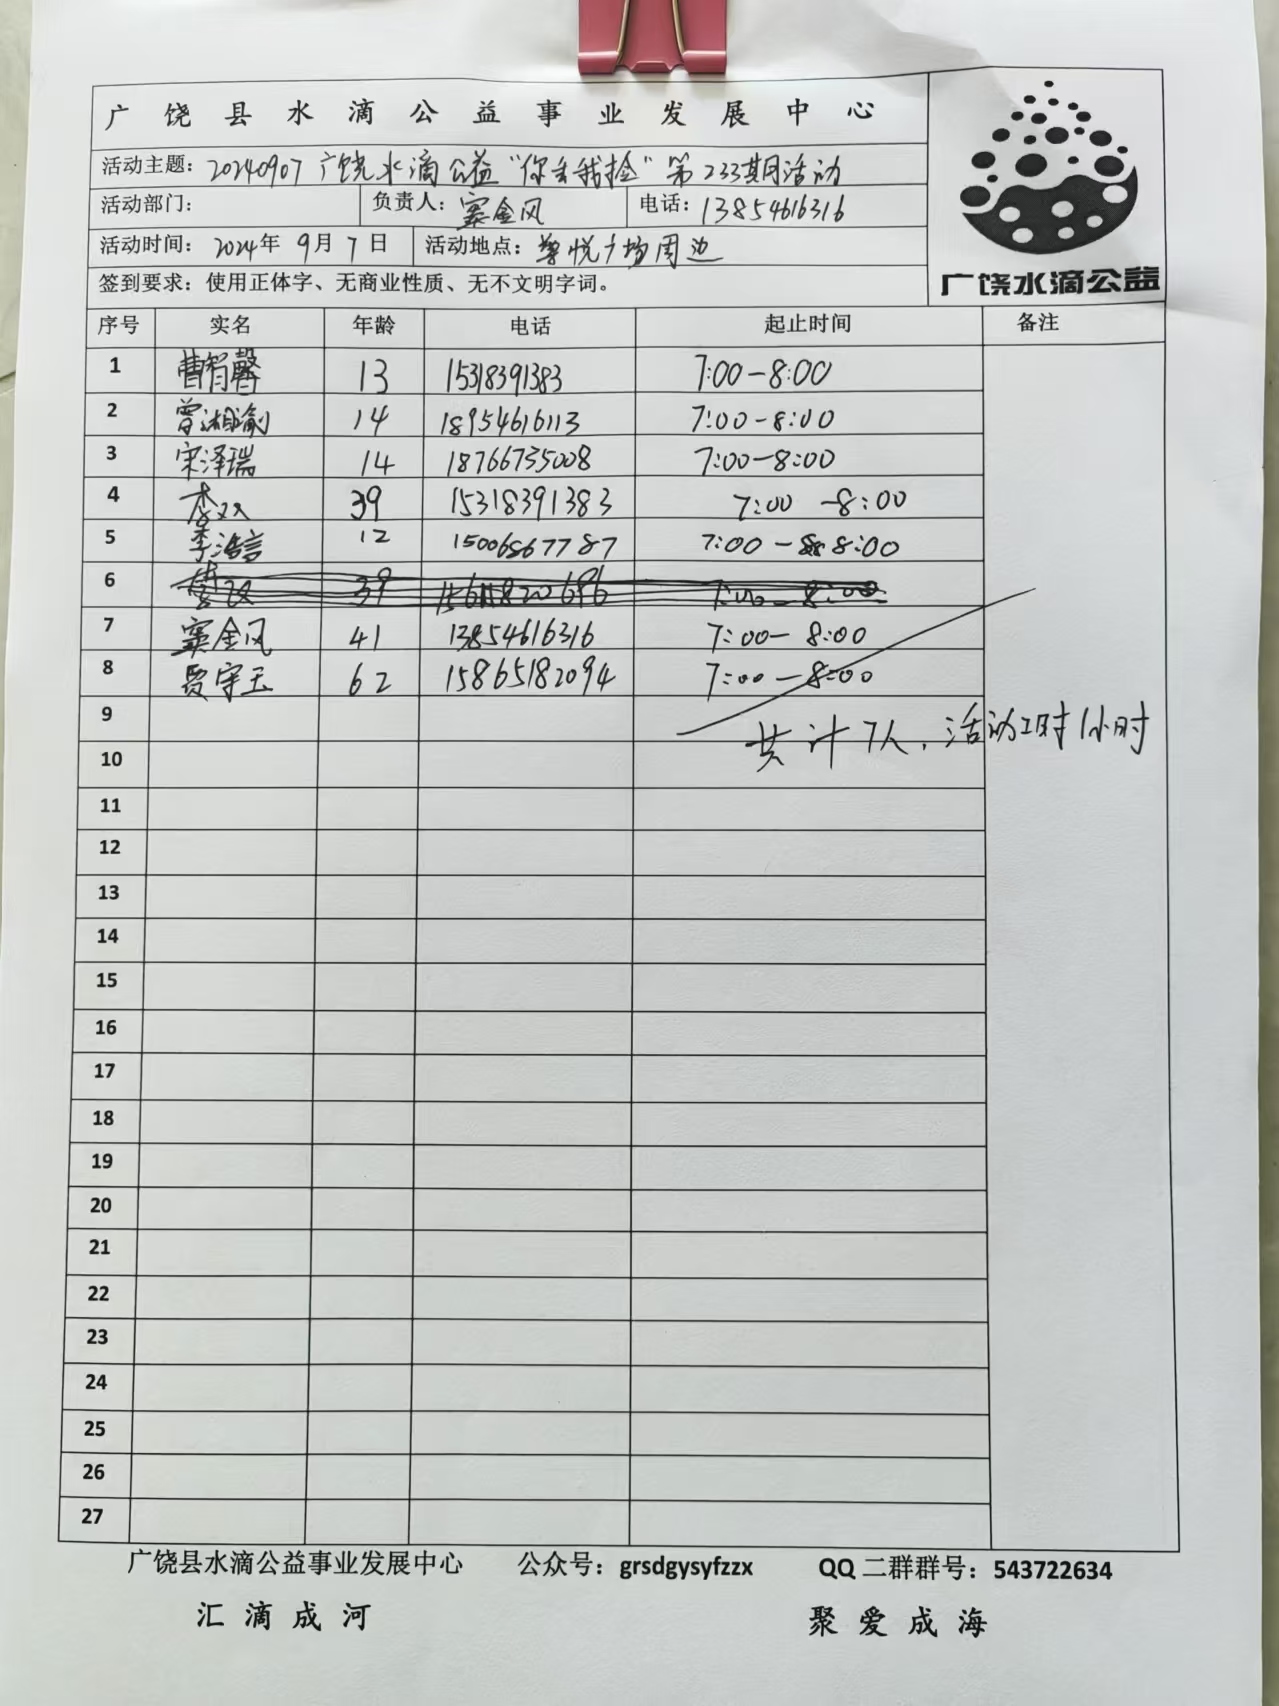 广饶县水滴公益事业发展中心
活动主题：20240907广饶水滴公益“你丢我捡”第233期活动
活动部门： 负责人：窦金风 电话：13854616316
活动时间：2024年9月7日 活动地点：尊悦广场周边
签到要求：使用正体字、无商业性质、无不文明字词。
广饶水滴公益
序号 实名 年龄 电话 起止时间 备注
1 曹智馨 13 15318391383 7:00-8:00
2 曾湘瑜 14 18954616113 7:00-8:00
3 宋泽瑞 14 18766735008 7:00-8:00
4 李双 39 15318391383 7:00-8:00
5 李浩言 12 15006867787 7:00-8:00
6 39 7:00-8:00
7 窦金风 41 13854616316 7:00-8:00
8 贾守玉 62 15865182094 7:00-8:00
9
共计7人，活动工时1小时
10
11
12
13
14
15
16
17
18
19
20
21
22
23
24
25
26
27
广饶县水滴公益事业发展中心 公众号：grsdgysyfzzx QQ二群群号：543722634
汇滴成河 聚爱成海